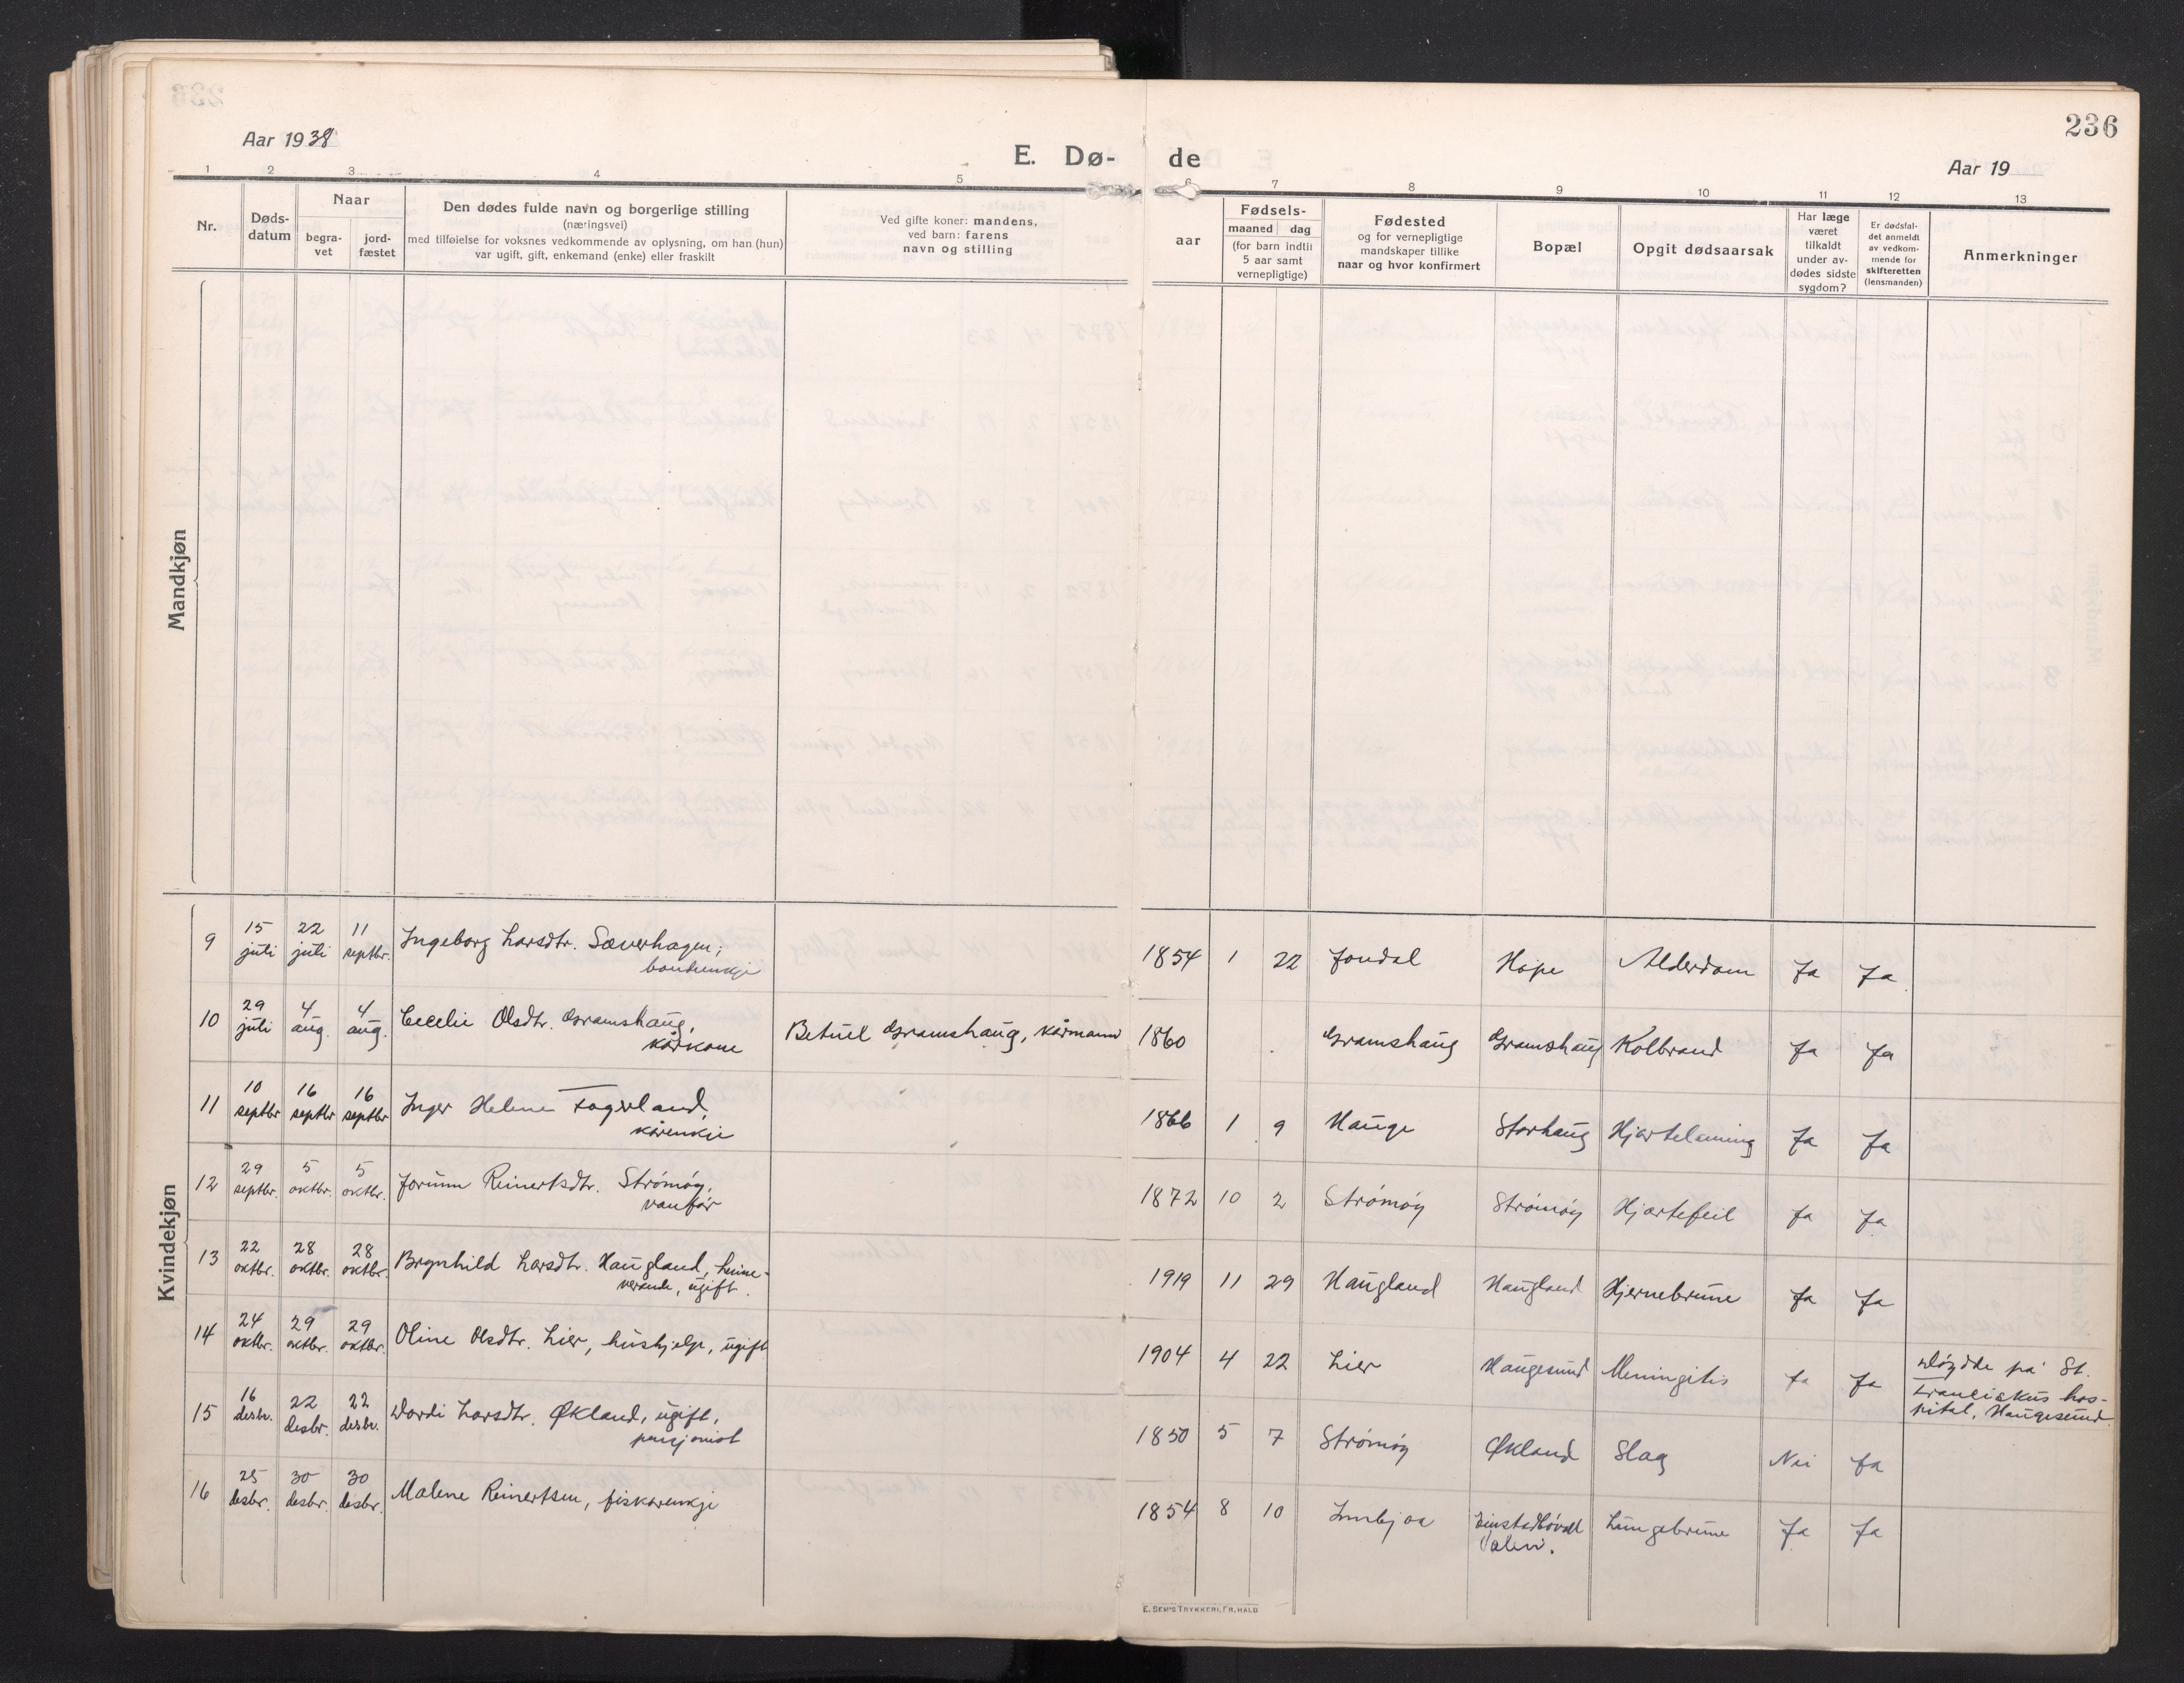 236
Aar 1938
E. Dø- de
Aar 19
1 2 3 4 5 6 7 8 9 10 11 12 13
Nr.
Døds-
datum
Naar
begra-
vet
jord-
fæstet
Den dødes fulde navn og borgerlige stilling
(næringsvei)
med tilføielse for voksnes vedkommende av oplysning, om han (hun)
var ugift, gift, enkemand (enke) eller fraskilt
Ved gifte koner: mandens,
ved barn: farens
navn og stilling
Fødsels-
aar
maaned dag
(for barn indtil
5 aar samt
vernepligtige)
Fødested
og for vernepligtige
mandskaper tillike
naar og hvor konfirmert
Bopæl
Opgit dødsaarsak
Har læge
været
tilkaldt
under av-
dødes sidste
sygdom?
Er dødsfal-
det anmeldt
av vedkom-
mende for
skifteretten
(lensmanden)
Anmerkninger
Mandkjøn
Kvindekjøn
9 15 juli 22 juli 11 septbr. Ingeborg Larsdtr. Sæverhagen,
bondeenkje
1854 1 22 Jondal Hope Alderdom Ja Ja
10 29 juli 4 aug. 4 aug. Cecelie Olsdtr. Gramshaug,
kårkone
Betuel Gramshaug, kårmann 1860 Gramshaug Gramshaug Kolbrand Ja Ja
11 10 septbr 16 septbr 16 septbr Inger Helene Fagerland,
kårenkje
1866 1 9 Hauge Storhaug Hjartelaming Ja Ja
12 29 septbr. 5 oktbr. 5 oktbr. Jorunn Reinertsdtr. Strømøy,
vanfør
1872 10 2 Strømøy Strømøy Hjartefeil Ja Ja
13 22 oktbr. 28 oktbr. 28 oktbr. Brynhild Larsdtr. Haugland, heime-
verande, ugift.
1919 11 29 Haugland Haugland Hjernebrune Ja Ja
14 24 oktbr. 29 oktbr. 29 oktbr. Oline Olsdtr. Lier, hushjelp, ugift
1904 4 22 Lier Haugesund Meningitis Ja Ja Døydde på St.
Franciskus hos-
pital, Haugesund
15 16 desbr. 22 desbr. 22 desbr. Dordi Larsdtr. Økland, ugift,
pensjonist
1850 5 7 Strømøy Økland Slag Nei Ja
16 25 desbr. 30 desbr. 30 desbr. Malene Reinertsen, fiskarenkje
1854 8 10 Innbjoa Lungebrune Ja Ja
Valen.
E. SEM'S TRYKKERI, FR.HALD